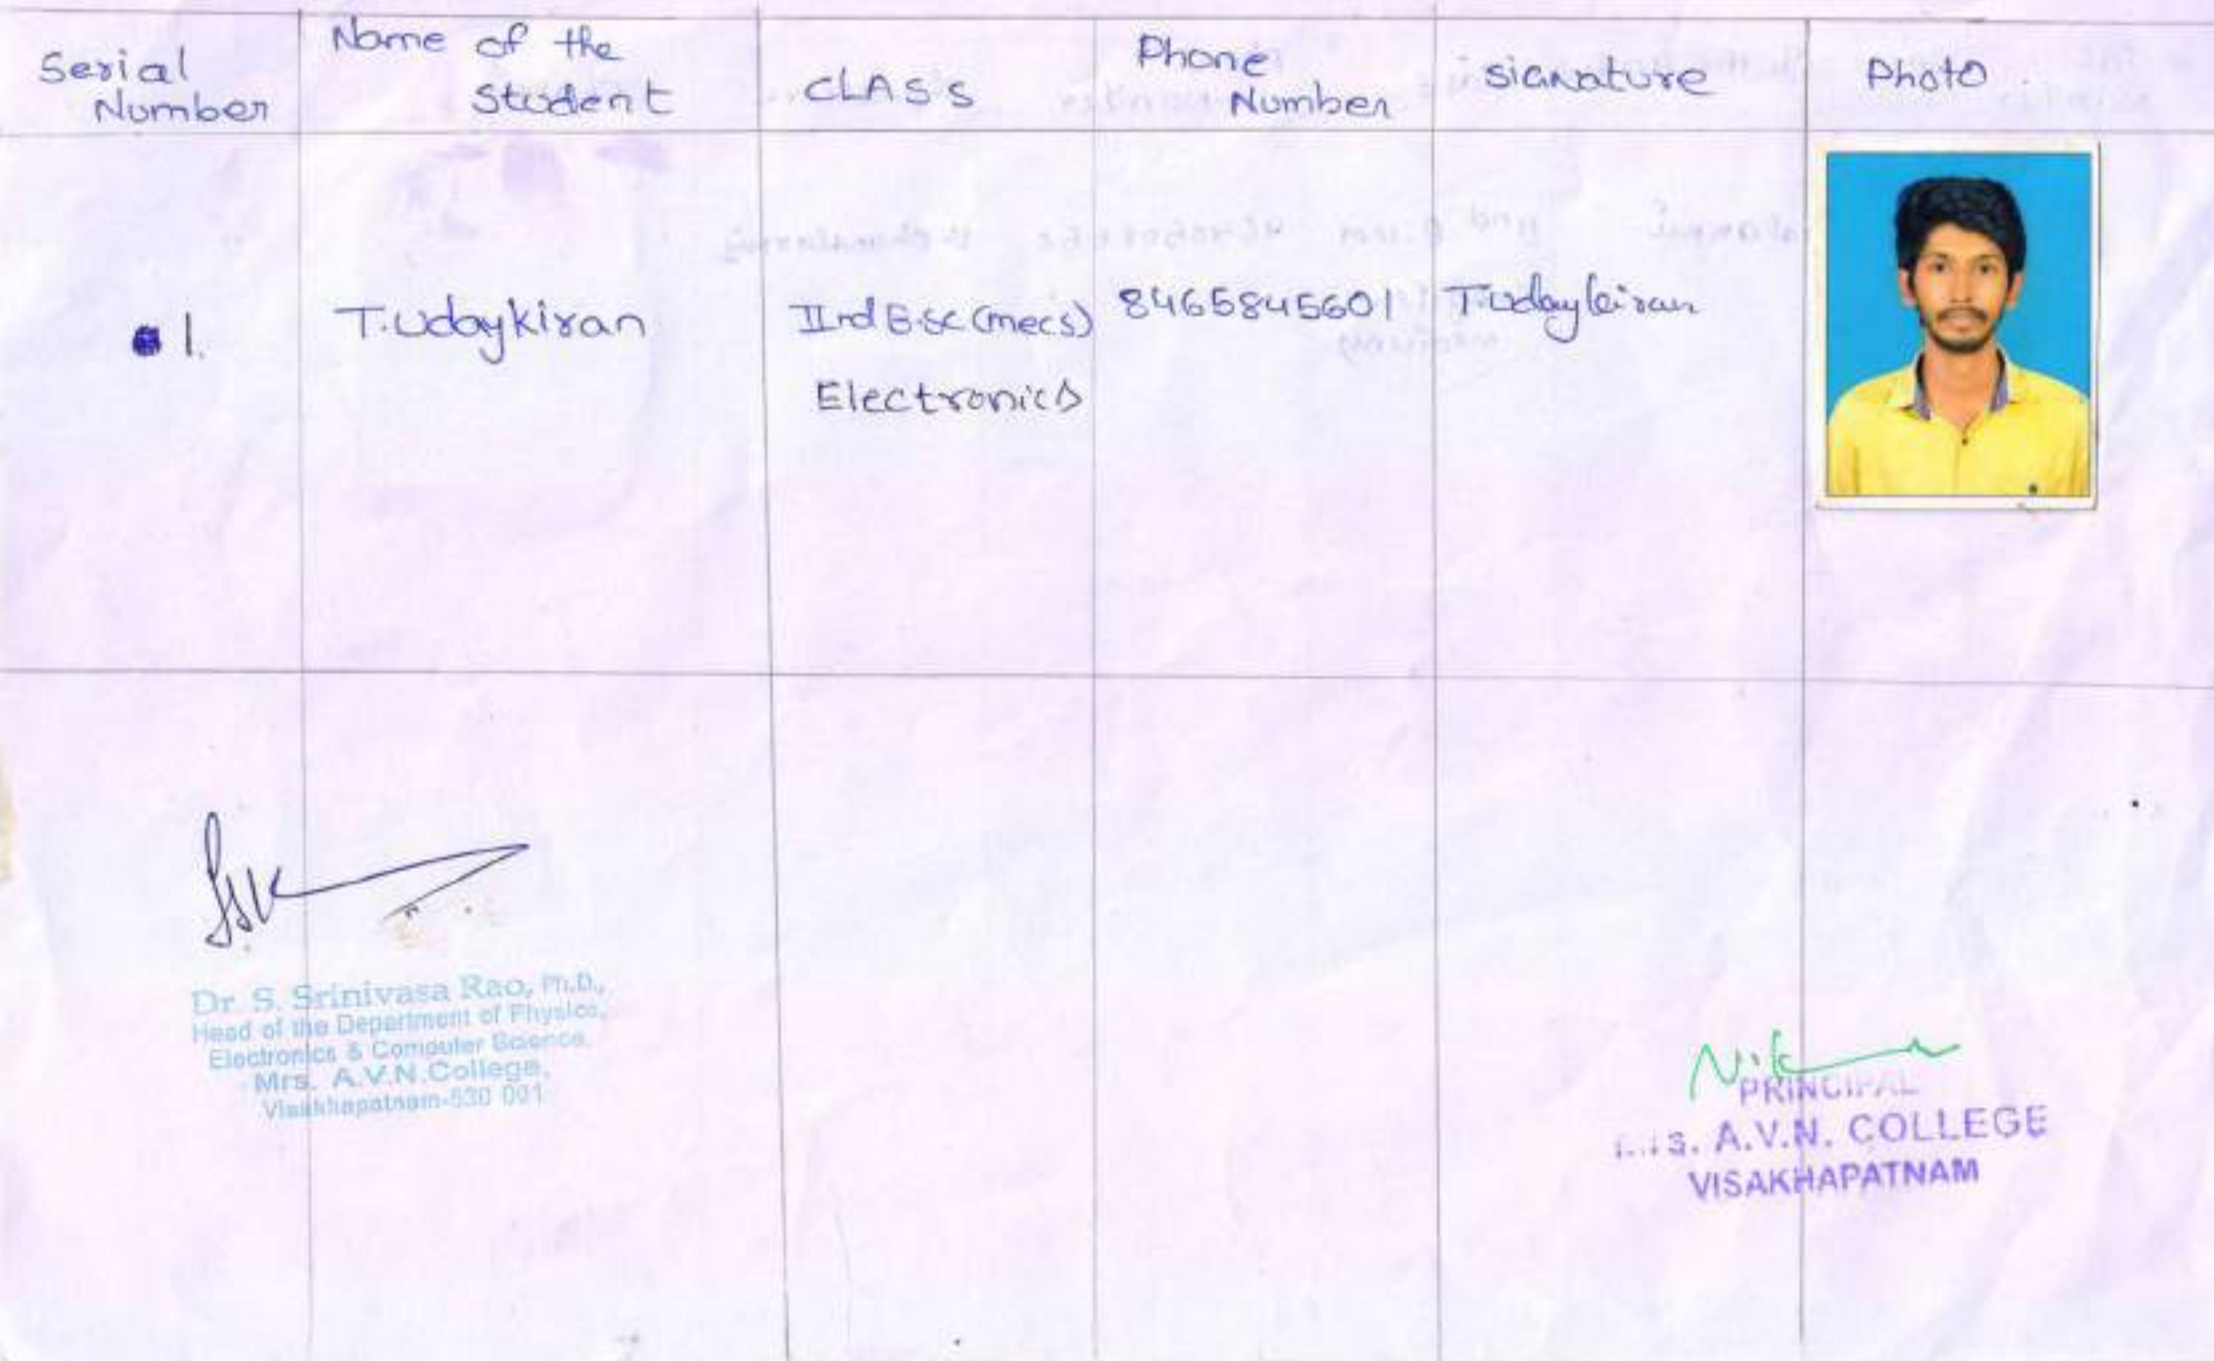 Serial Number
Name of the Student
CLASS
Phone Number
Signature
Photo
1.
T.Udaykiran
IInd B.sc (mecs)
Electronics
8465845601
T.udaykiran
Dr. S. Srinivasa Rao, Ph.D.,
Head of the Department of Physics,
Electronics & Computer Science
Mrs. A.V.N.College,
Visakhapatnam-530 001
PRINCIPAL
A.V.N. COLLEGE
VISAKHAPATNAM